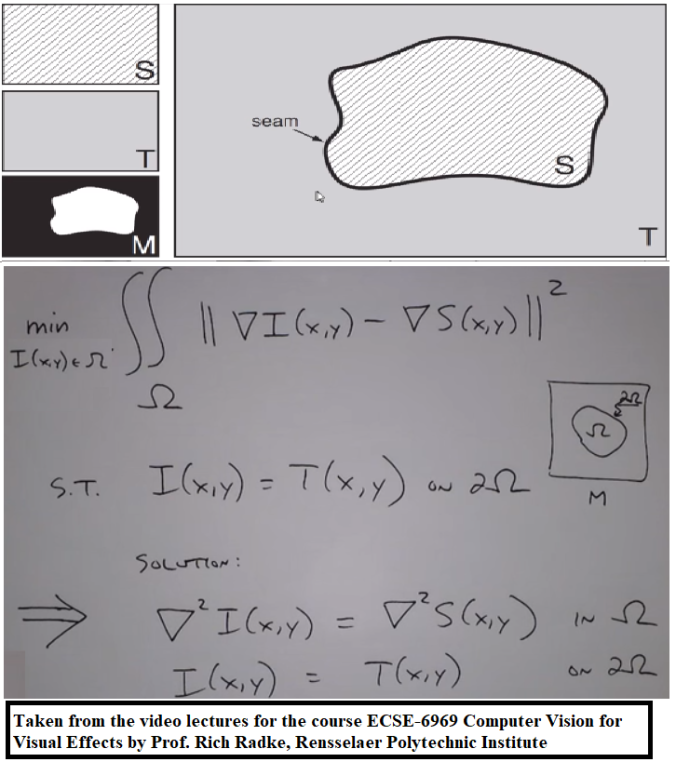 S
T
M
seam
S
T
min
I(x,y)∈Ω
∬
Ω
‖∇I(x,y) − ∇S(x,y)‖²
∂Ω
Ω
M
S.T. I(x,y) = T(x,y) ON ∂Ω
SOLUTION:
⇒ ∇²I(x,y) = ∇²S(x,y) IN Ω
I(x,y) = T(x,y) ON ∂Ω
Taken from the video lectures for the course ECSE-6969 Computer Vision for
Visual Effects by Prof. Rich Radke, Rensselaer Polytechnic Institute